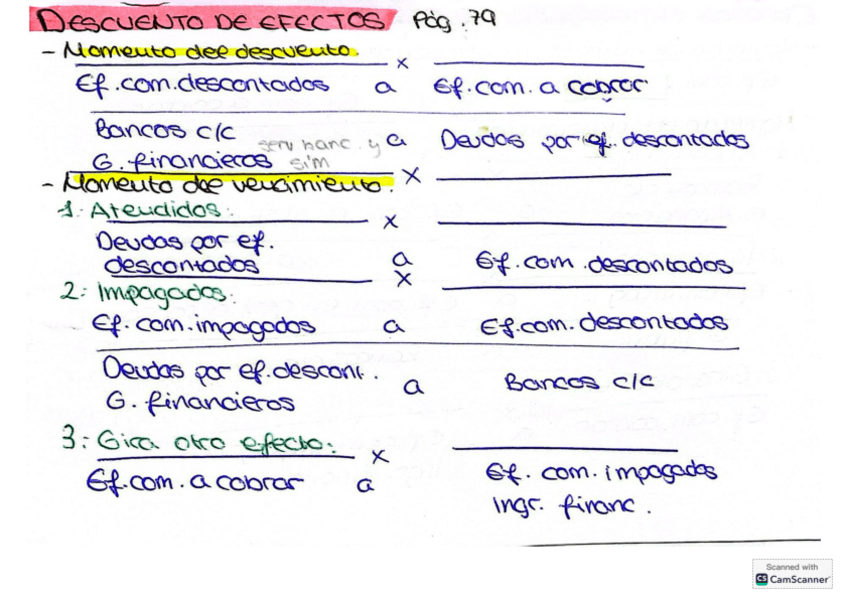 DESCUENTO DE EFECTOS Pág: 79
- Momento del descuento
x
Ef. com. descontados a Ef. com. a cobrar
Bancos c/c a Deudas por ef. descontados
serv banc. y
G. financieros sim
- Momento del vencimiento. x
1: Atendidos: x
Deudas por ef.
descontados a Ef. com. descontados
x
2: Impagados:
Ef. com. impagados a Ef. com. descontados
Deudas por ef. descont. a Bancos c/c
G. financieros
3: Gira otro efecto: x
Ef. com. a cobrar a Ef. com. impagados
Ingr. financ.
Scanned with
CS CamScanner